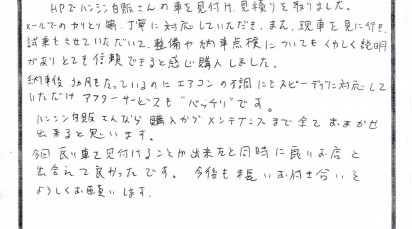 HPでハンシン自販さんの車を見付け、見積りを取りました。
メールでのやりとり後、丁寧に対応していただき、また、現車を見に行き、
試乗もさせていただいて、整備や納車点検についてもくわしく説明
がありとても信頼できると感じ購入しました。
納車後3ヵ月もたっているのにエアコンの不調にもスピーディーに対応して
いただけアフターサービスも"バッチリ"です。
ハンシン自販さんなら購入からメンテナンスまで全ておまかせ
出来ると思います。
今回良い車を見付けることが出来たと同時に良いお店と
出会えて良かったです。今後も長いお付き合いを
よろしくお願いします。